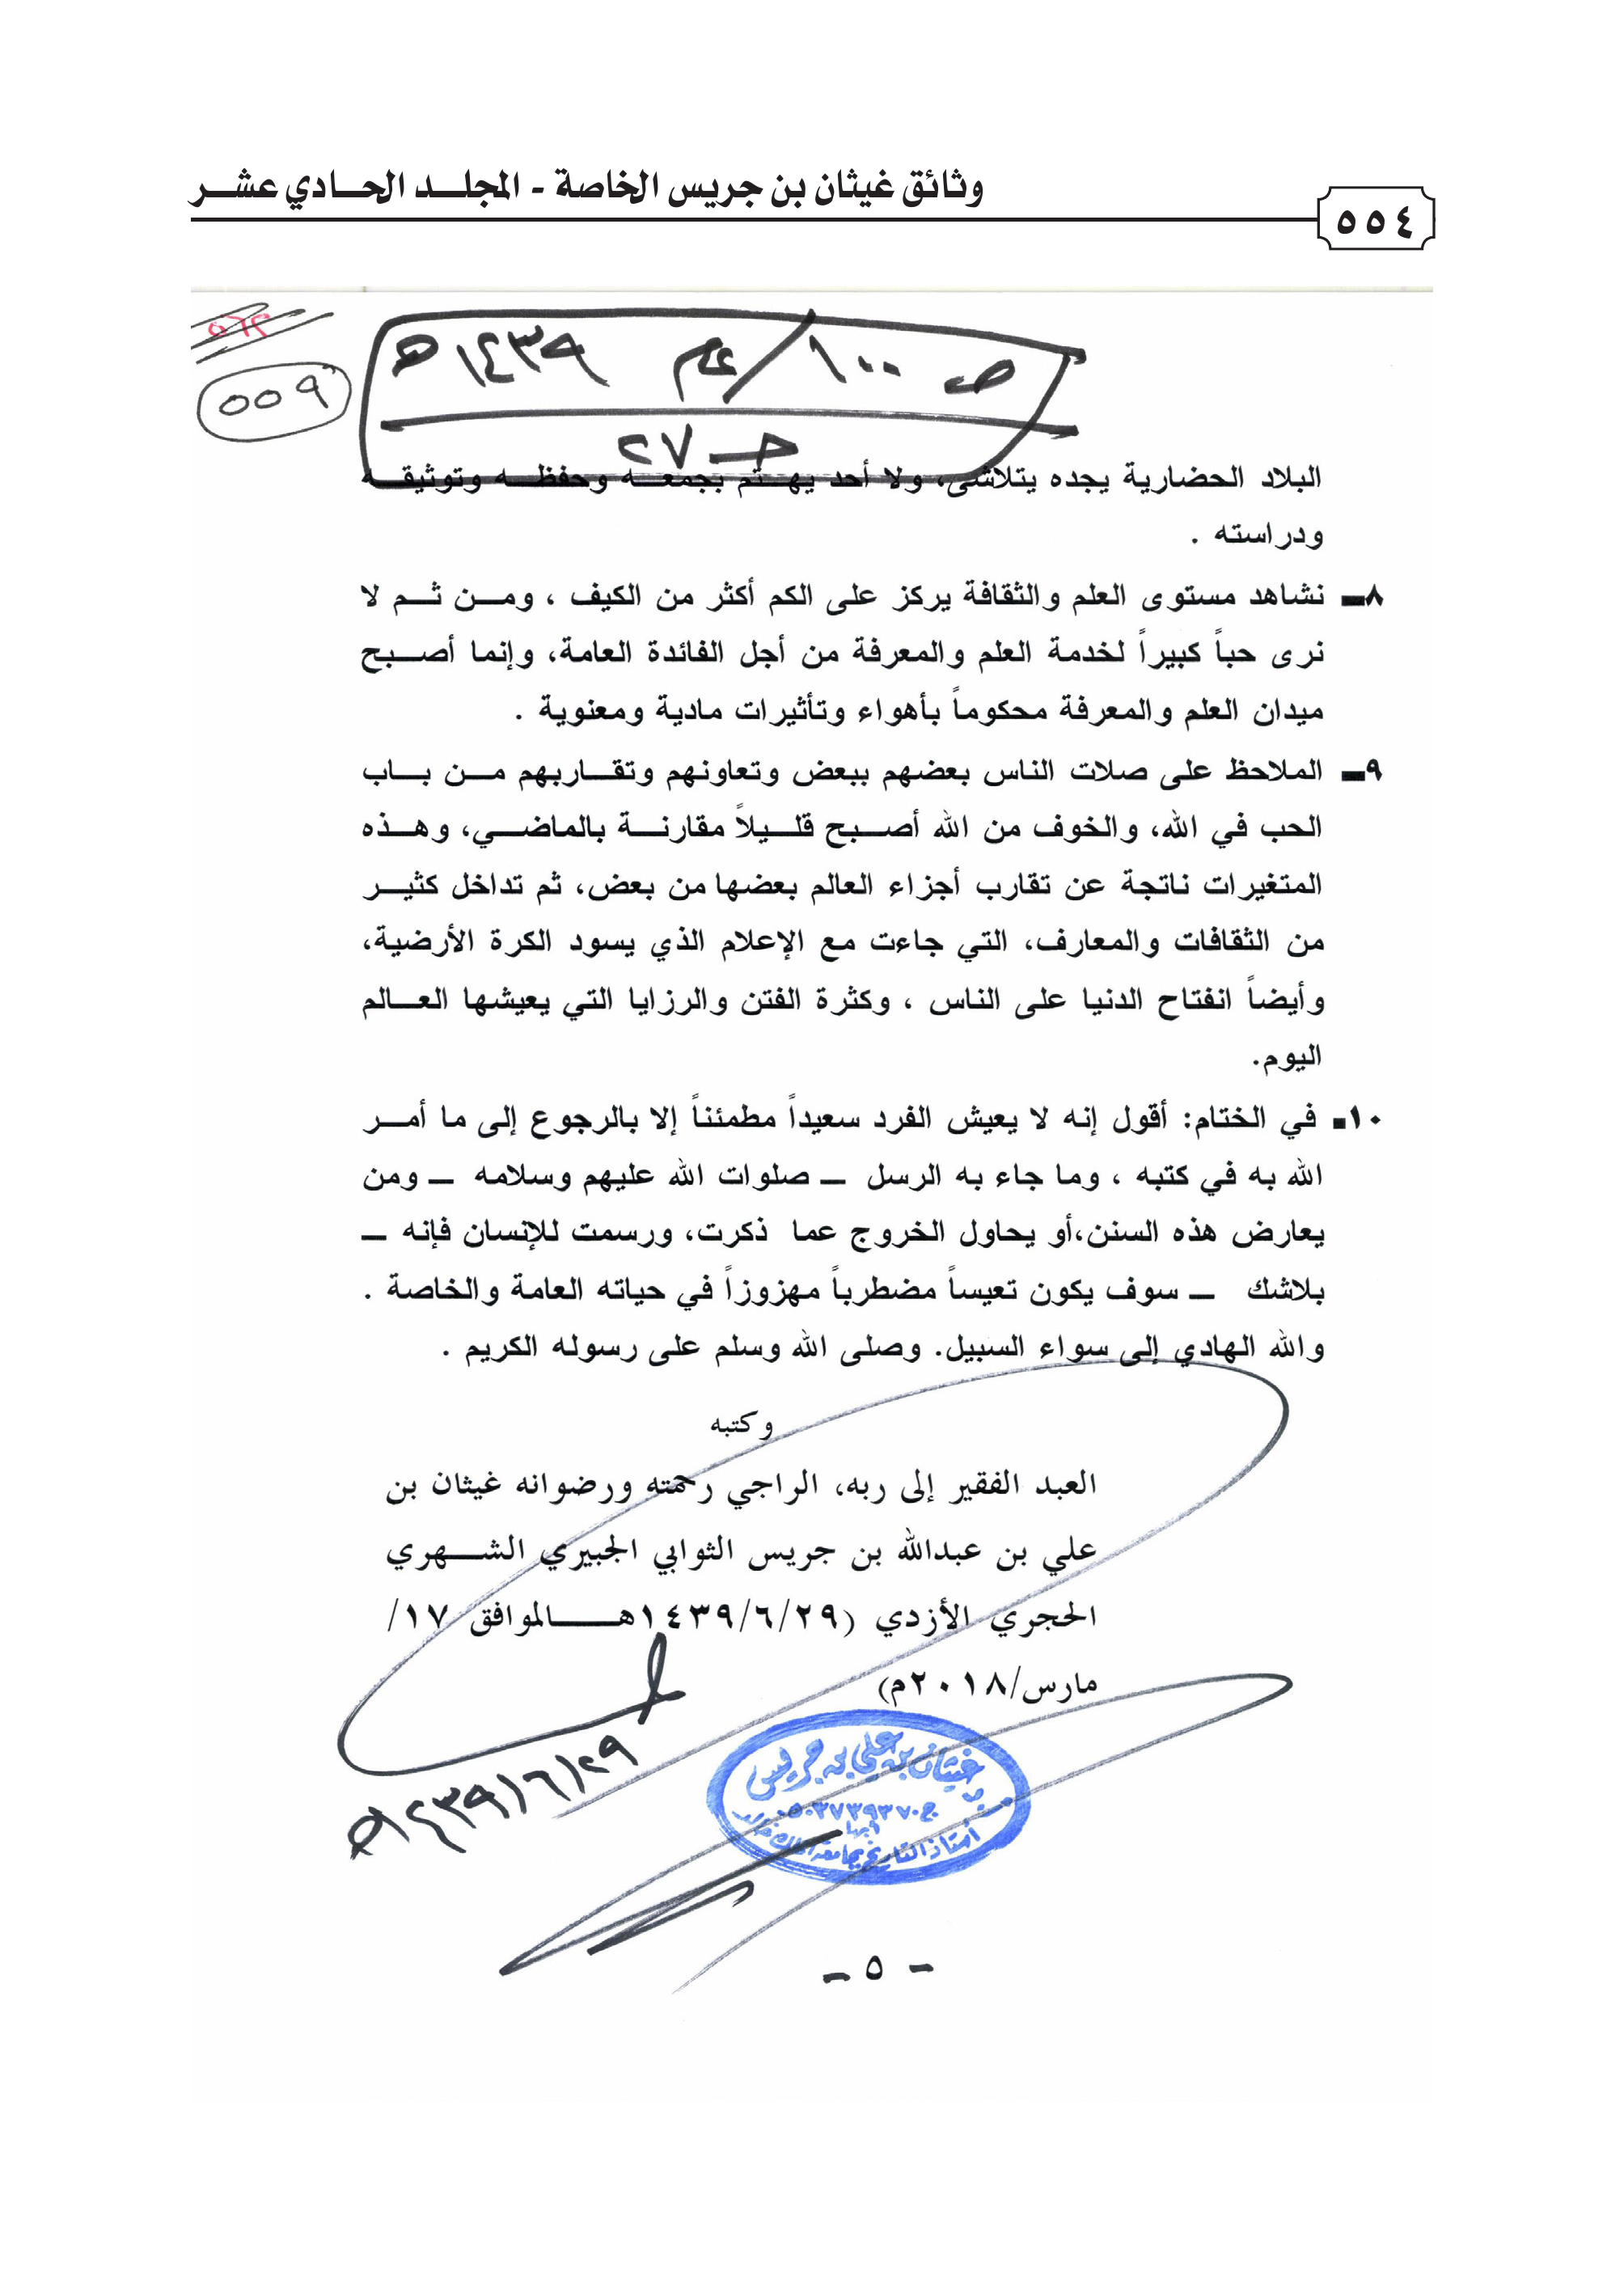 وثائق غيثان بن جريس الخاصة - المجلد الحادي عشر
٥٥٤
ص ١٠٠/ عام ١٤٣٩هـ
جـ ٢٧
٥٥٩
البلاد الحضارية يجده يتلاشى، ولا أحد يهتم بجمعه وحفظه وتوثيقه
ودراسته .
٨ـ نشاهد مستوى العلم والثقافة يركز على الكم أكثر من الكيف ، ومن ثم لا
نرى حباً كبيراً لخدمة العلم والمعرفة من أجل الفائدة العامة، وإنما أصبح
ميدان العلم والمعرفة محكوماً بأهواء وتأثيرات مادية ومعنوية .
٩ـ الملاحظ على صلات الناس بعضهم ببعض وتعاونهم وتقاربهم من باب
الحب في الله، والخوف من الله أصبح قليلاً مقارنة بالماضي، وهذه
المتغيرات ناتجة عن تقارب أجزاء العالم بعضها من بعض، ثم تداخل كثير
من الثقافات والمعارف، التي جاءت مع الإعلام الذي يسود الكرة الأرضية،
وأيضاً انفتاح الدنيا على الناس ، وكثرة الفتن والرزايا التي يعيشها العالم
اليوم.
١٠ـ في الختام: أقول إنه لا يعيش الفرد سعيداً مطمئناً إلا بالرجوع إلى ما أمر
الله به في كتبه ، وما جاء به الرسل ــ صلوات الله عليهم وسلامه ــ ومن
يعارض هذه السنن،أو يحاول الخروج عما ذكرت، ورسمت للإنسان فإنه ــ
بلاشك ــ سوف يكون تعيساً مضطرباً مهزوزاً في حياته العامة والخاصة .
والله الهادي إلى سواء السبيل. وصلى الله وسلم على رسوله الكريم .
وكتبه
العبد الفقير إلى ربه، الراجي رحمته ورضوانه غيثان بن
علي بن عبدالله بن جريس الثوابي الجبيري الشهري
الحجري الأزدي (١٤٣٩/٦/٢٩هـ الموافق ١٧/
مارس/٢٠١٨م)
١٤٣٩/٦/٢٩هـ
غيثان بن علي بن جريس
ج ٠٥٠٣٧٣٩٣٧٠
أبها
أستاذ التاريخ بجامعة الملك خالد
- ٥ -